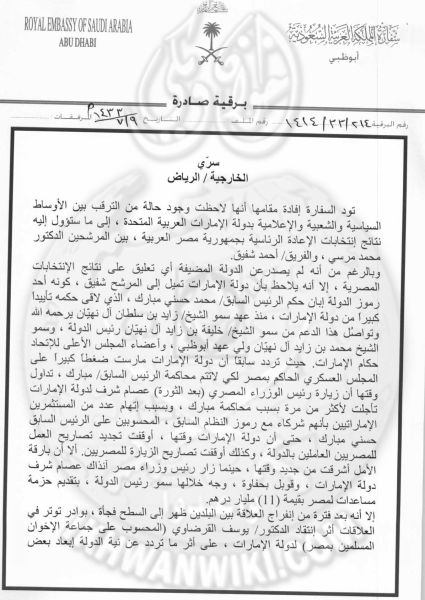 ROYAL EMBASSY OF SAUDI ARABIA
ABU DHABI
سفارة المملكة العربية السعودية
أبوظبي
برقية صادرة
رقم البرقية ١٤١٤/٣٣/٢١٤ رقم الملف التاريخ ١٤٣٣/٧/٩ المرفقات
سري
الخارجية / الرياض
تود السفارة إفادة مقامها أنها لاحظت وجود حالة من الترقب بين الأوساط
السياسية والشعبية والإعلامية بدولة الإمارات العربية المتحدة ، إلى ما ستؤول إليه
نتائج إنتخابات الإعادة الرئاسية بجمهورية مصر العربية ، بين المرشحين الدكتور
محمد مرسي ، والفريق/ أحمد شفيق.
وبالرغم من أنه لم يصدر عن الدولة المضيفة أي تعليق على نتائج الإنتخابات
المصرية ، إلا أنه يلاحظ بأن دولة الإمارات تميل إلى المرشح شفيق ، كونه أحد
رموز الدولة إبان حكم الرئيس السابق/ محمد حسني مبارك ، الذي لاقى حكمه تأييداً
كبيراً من دولة الإمارات ، منذ عهد سمو الشيخ/ زايد بن سلطان آل نهيان يرحمه الله
وتواصل هذا الدعم من سمو الشيخ/ خليفة بن زايد آل نهيان رئيس الدولة ، وسمو
الشيخ محمد بن زايد آل نهيان ولي عهد أبوظبي ، وأعضاء المجلس الأعلى للإتحاد
حكام الإمارات. حيث تردد سابقاً أن دولة الإمارات مارست ضغطاً كبيراً على
المجلس العسكري الحاكم بمصر لكي لاتتم محاكمة الرئيس السابق/ مبارك ، تداول
وقتها أن زيارة رئيس الوزراء المصري (بعد الثورة) عصام شرف لدولة الإمارات
تأجلت لأكثر من مرة بسبب محاكمة مبارك ، وبسبب إتهام عدد من المستثمرين
الإماراتيين بأنهم شركاء مع رموز النظام السابق ، المحسوبين على الرئيس السابق
حسني مبارك ، حتى أن دولة الإمارات وقتها ، أوقفت تجديد تصاريح العمل
للمصريين العاملين بالدولة ، وكذلك أوقفت تصاريح الزيارة للمصريين. ألا أن بارقة
الأمل أشرقت من جديد وقتها ، حينما زار رئيس وزراء مصر آنذاك عصام شرف
دولة الإمارات ، وقوبل بحفاوة ، وجه خلالها سمو رئيس الدولة ، بتقديم حزمة
مساعدات لمصر بقيمة (11) مليار درهم.
إلا أنه بعد فترة من إنفراج العلاقة بين البلدين ظهر إلى السطح فجأة ، بوادر توتر في
العلاقات أثر إنتقاد الدكتور/ يوسف القرضاوي (المحسوب على جماعة الإخوان
المسلمين بمصر) لدولة الإمارات ، على أثر ما تردد عن نية الدولة إبعاد بعض